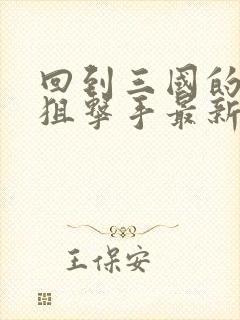 回到三國的
狙擊手最新
王保安